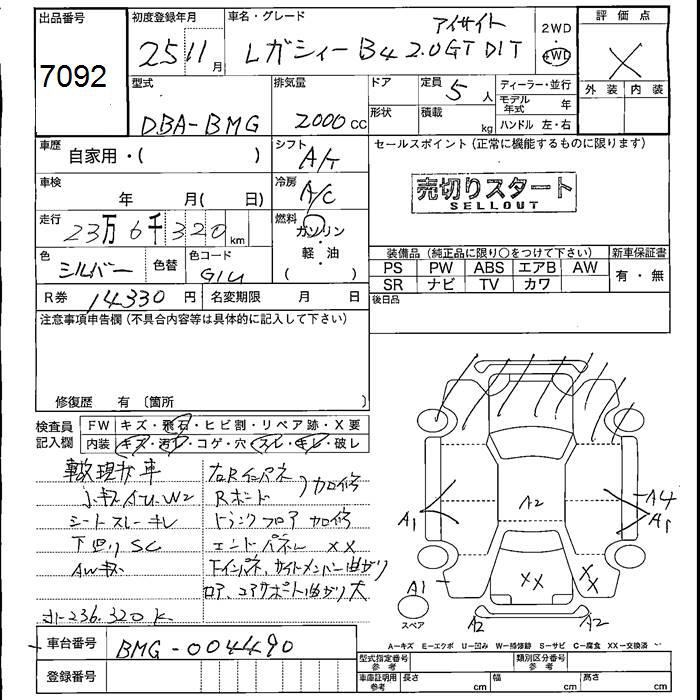 出品番号
7092
初度登録年月
25 11月
車名・グレード
アイサイト
レガシィー B4 2.0GT DIT
2WD
4WD
評価点
X
外装 内装
型式
DBA-BMG
排気量
2000 cc
ドア
定員 5 人
形状
積載 kg
ディーラー・並行
モデル年式 年
ハンドル 左・右
車歴
自家用・( )
シフト
A/T
セールスポイント (正常に機能するものに限ります)
売切りスタート
SELLOUT
車検
年 月( 日)
冷房
A/C
走行
23万 6千 320 km
燃料
ガソリン
軽・油
( )
装備品 (純正品に限り○をつけて下さい)
新車保証書
PS PW ABS エアB AW
SR ナビ TV カワ
有・無
色
シルバー
色替
色コード
G1U
後日品
R券 14330 円
名変期限 月 日
注意事項申告欄 (不具合内容等は具体的に記入して下さい)
修復歴 有 〔箇所 〕
検査員
記入欄
FW キズ・飛石・ヒビ割・リペア跡・X要
内装 キズ・汚レ・コゲ・穴・スレ・キレ・破レ
小キズ
W2
シートスレ・キレ
下廻りSC
AWキズ
右Rインパネ
Rボンド
加修
トランクフロア 加修
エンドパネル XX
下インパネ、サイドメンバー曲がり
ロア、コアサポート曲がり大
236.320K
A2
A1
A4
A1
A1
XX
XX
A2
A2
スペア
A-キズ E-エクボ U-凹み W-補修跡 S-サビ C-腐食 XX-交換済
車台番号
BMG-004490
登録番号
型式指定番号
参考
類別区分番号
参考
車庫証明用
参考
長さ cm
幅 cm
高さ cm